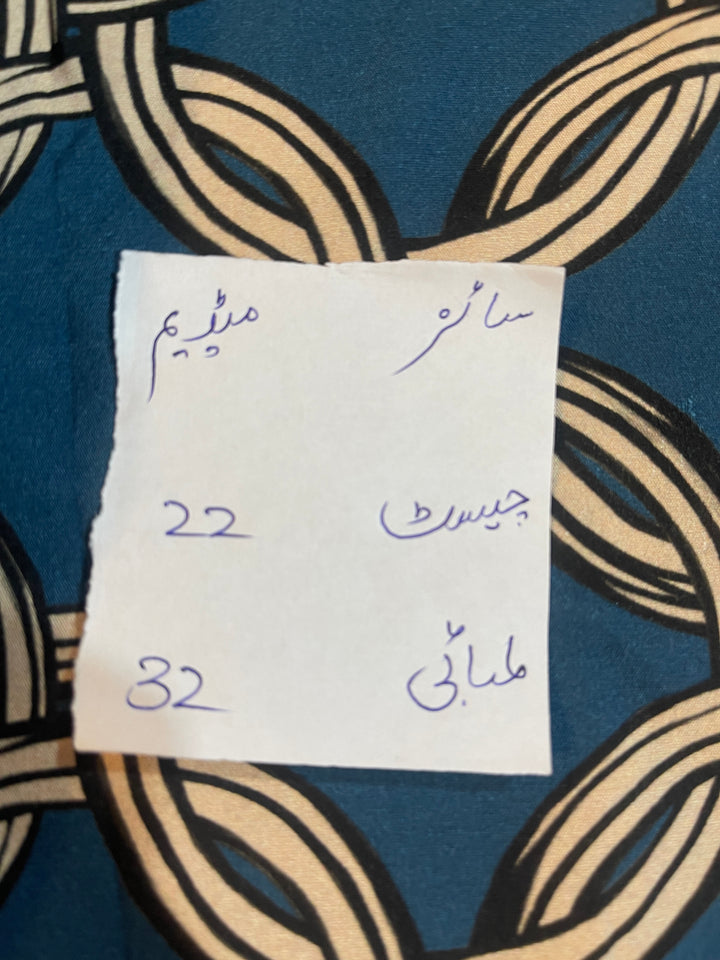 سائز میڈیم
چیسٹ 22
لمبائی 32